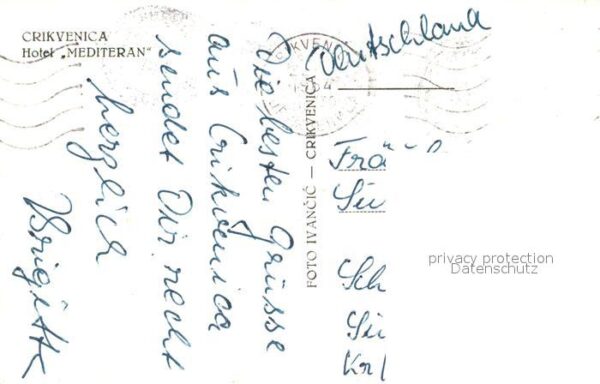 CRIKVENICA
Hotel „MEDITERAN“
Die besten Grüsse
aus Crikvenica
sendet Dir recht
herzlich
Brigitte
FOTO IVANČIĆ — CRIKVENICA
CRIKVENICA
Deutschland
Frä
Su
Sch
Su
Kr/
privacy protection
Datenschutz